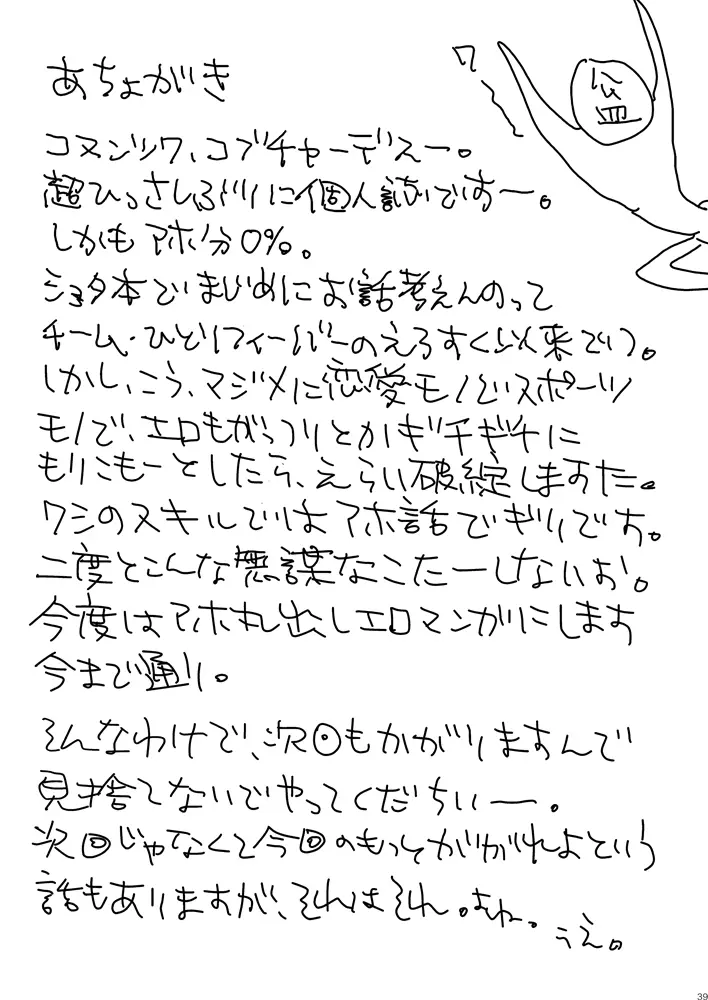 あちょがき
ワ
公皿
コヌンツワ、コブチャーデえー。
超ひっさしぶりに個人誌ですー。
しかもアホ分0%。
ショタ本でまじめにお話考えんのって
チーム・ひとりフィーバーのえろすく以来でつ。
しかし、こう、マジメに恋愛モノどスポーツ
モノで、エロもがっつりとかギチギチに
もりこもーとしたら、えらい破綻しますた。
ワシのスキルではアホ話でぎりです。
二度とこんな無謀なこたーしないお。
今度はアホ丸出しエロマンガにします
今まで通り。
そんなわけで、次回もかがりますんで
見捨てないでやってくだちいー。
次回じゃなくて今回のもっとががれよという
話もありますが、それはそれ。よね。
こえ。
39